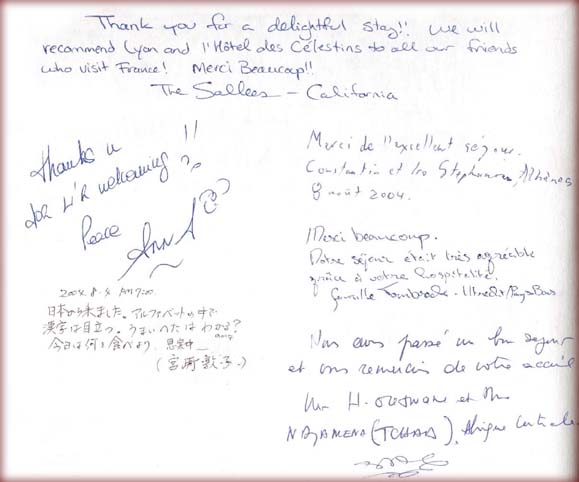 Thank you for a delightful stay!! We will
recommend Lyon and l'Hôtel des Célestins to all our friends
who visit France! Merci Beaucoup!!
The Sallees - California
Thanks u !!
for welcoming
Peace
ANNA
2004. 8. 4 AM 7:00.
日本から来ました。アルファベートの中で
漢字は目立つ。うまいへたはわかる?
今日は何を食べよう。思案中
(宮崎敦子。)
Merci de l'excellent séjour.
Constantin et Athènes
8 août 2004.
Merci beaucoup.
Notre séjour était très agréable
grâce à votre hospitalité.
Famille - Utrecht/Pays Bas
Nous avons passé un bon séjour
et vous remercions de votre accueil
Mr H. et Mme
NDJAMENA (TCHAD), Afrique Centrale